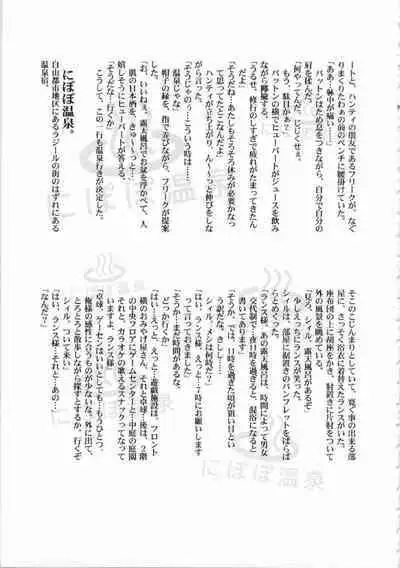 ートと、ハンティの朋友であるフリークが、なぐ
りまくりたわぁの前のベンチに腰掛けていた。
「ああ、躰中が痛い…」
パットンはため息をつきながら、自分で自分の
肩を揉んだ。
「何やってんだ、じじくせぇ。
もう、駄目かぁ?」
パットンの横でヒューバートがジュースを飲み
ながら揶揄する。
「うるせ、修行のしすぎで疲れがたまってきたん
だよ」
「そうだね…あたしもそろそろ休みが必要かなっ
て思ってたとこだよ」
ハンティが立ち上がり、ん〜〜っと伸びをしな
がら言った。
「そうじゃのう…こういう時は…
温泉じゃな」
帽子の縁を、指で弄びながら、フリークが提案
した。
「お、いいねぇ。露天風呂でお盆を浮かべて、人
肌の日本酒を、きゅ〜っと…」
嬉しそうにヒューバートが答える。
「そうだな…行くか」
こうして、この一行も温泉行きが決定した。
にぽぽ温泉。
自由都市地区にあるラジールの街のはずれにある
温泉宿。
そこのこじんまりとしていて、寛ぐ事の出来る部
屋に、さっそく浴衣に着替えたランスがいた。
座布団の上に胡座をかき、肘置きに片肘をついて
外の風景を眺めている。
「見ろ、シィル。露天風呂があるぞ」
少しえっちにランスが笑った。
シィルは、部屋に据置きのパンフレットをぱらぱ
らとめくった。
「ランス様、あの露天風呂は、時間によって男女
交代制で、11時を過ぎると、混浴になると
書いてあります」
「そうか、では、11時を過ぎた頃が狙い目とい
う訳だな。きしし…
シィル、メシは何時だ?」
「はい、ランス様、えっと…7時にお願いします
って言っておきました」
「そうか…まだ時間があるな。
どっか行くか」
「はい、えっと、遊戯施設は、フロント
横のおみやげ屋さん、それと卓球…後は、2階
の中央フロアにゲームセンターと…中庭の庭園
それと、カラオケの歌えるスナックってなって
いますよ、ランス様」
「卓球、ゲーセンはいいとしても…もうひとつ、
俺様の感性に合うものが少ないな。外に出て、
とろとろと散策しながら探すとするか、行くぞ
シィル」
「はい、ランス様…それと…あの…」
「なんだ?」
にぽぽ温泉
にぽぽ温泉